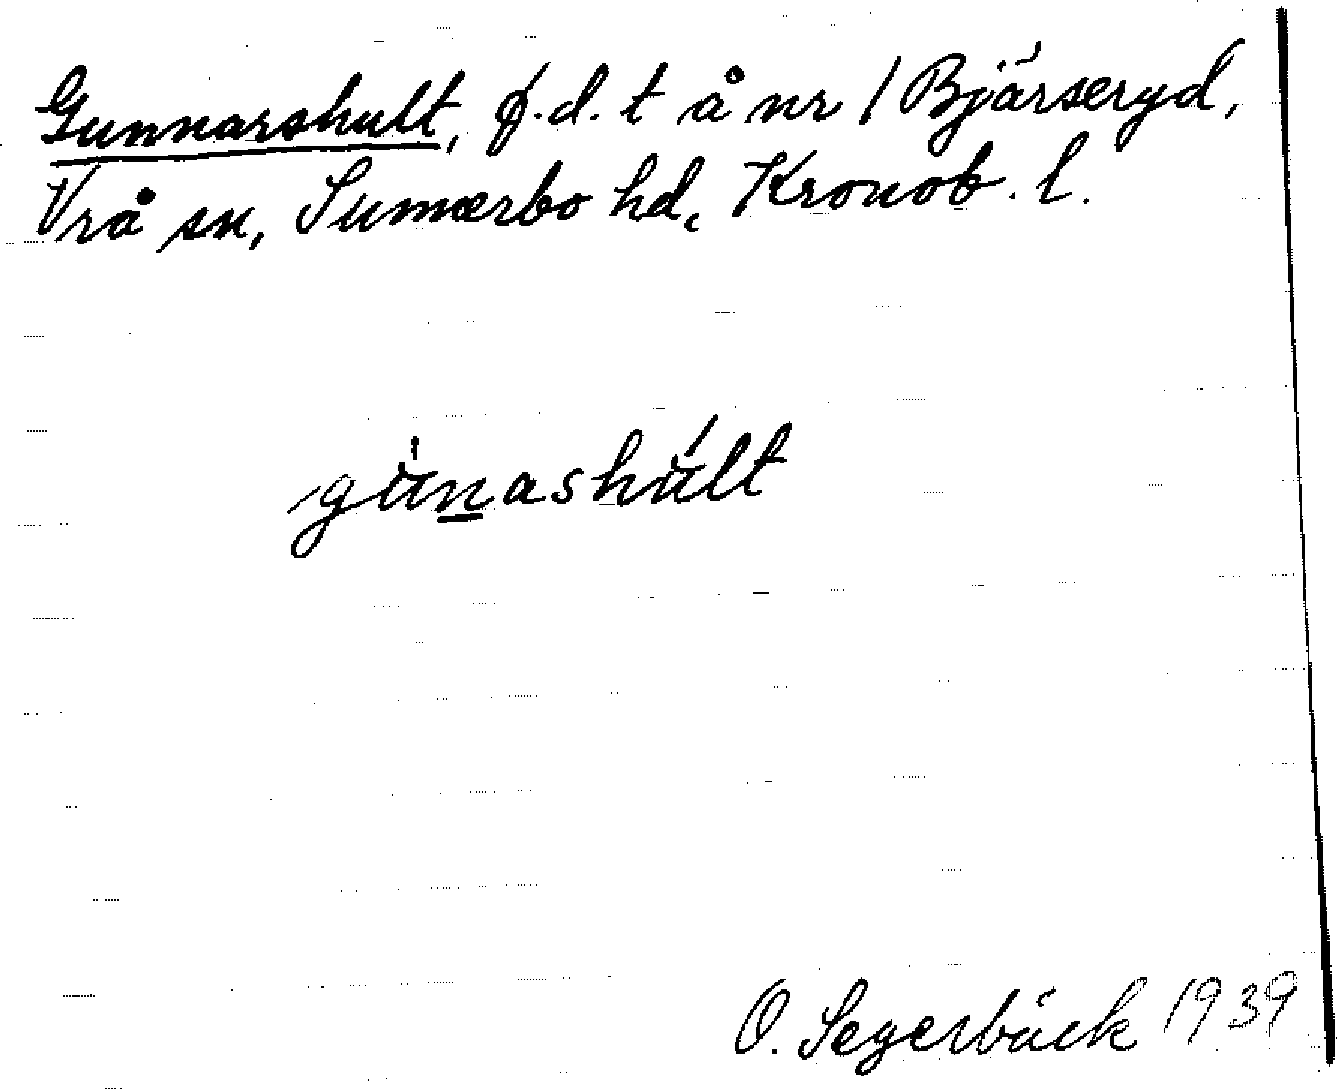 Gunnarshult, f.d. t å nr 1 Bjärseryd,
Vrå sn, Sunnerbo hd, Kronob. l.
gùnashúlt
O. Segerbäck 1939